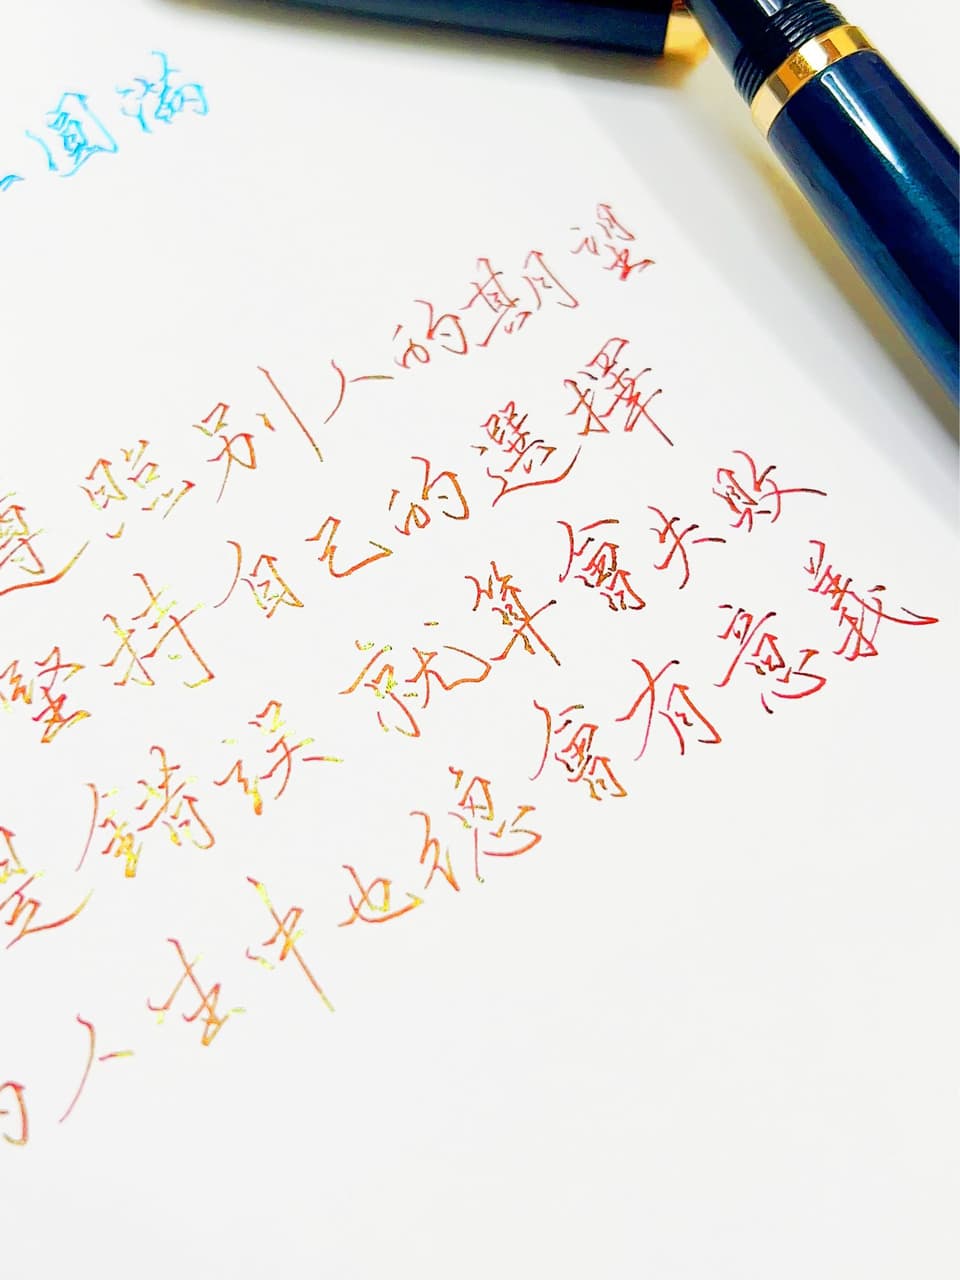 圓滿
遵照別人的期望
堅持自己的選擇
是錯誤 就算會失敗
的人生中也總會有意義